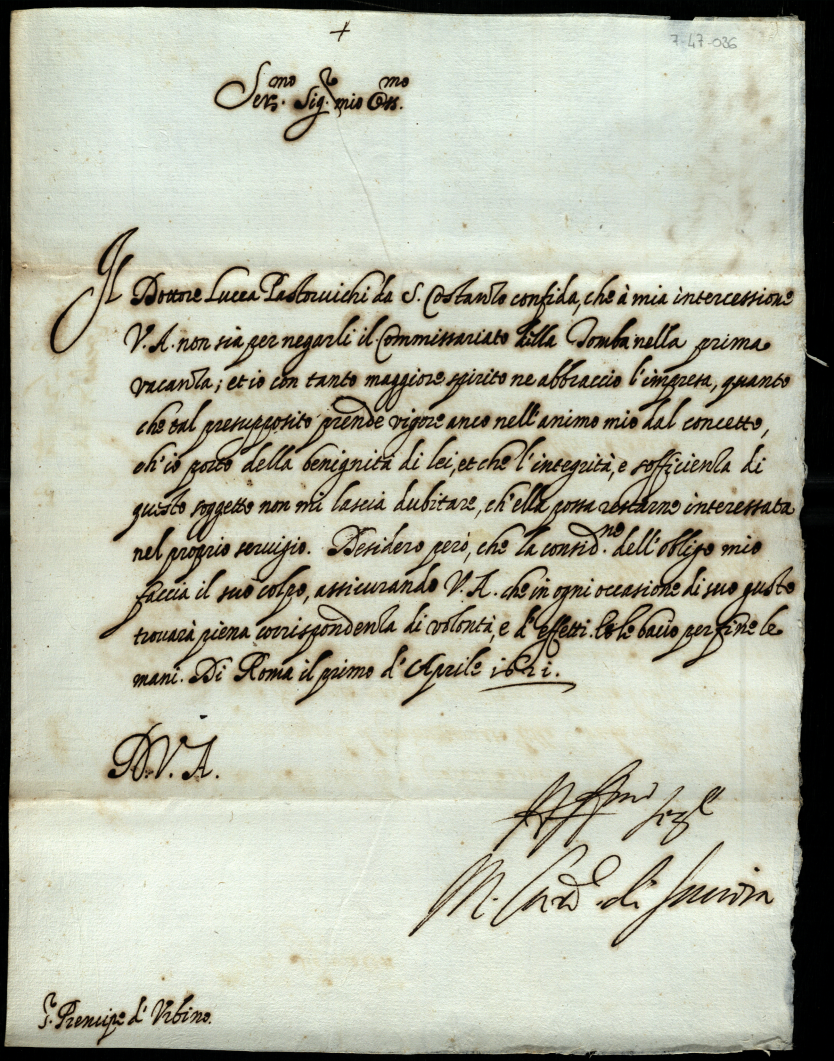 7-47-036
+
Ser.mo Sig.r mio Oss.mo
Il Dottore Lucca Pastovichi da S. Costanzo confida, che à mia intercessione
V. A. non sia per negarli il Commissariato della Tomba nella prima
vacanza; et io con tanto maggiore spirito ne abbraccio l'impresa, quanto
che tal presupposito prende vigore anco nell'animo mio dal concetto,
ch'io porto della benignità di lei, et che l'integrità, e sofficienza di
questo soggetto non mi lascia dubitare, ch'ella possa restarne interessata
nel proprio servigio. Desidero però, che la consid.ne dell'obligo mio
faccia il suo colpo, assicurando V. A. che in ogni occasione di suo gusto
trovarà piena corrispondenza di volontà, e d'effetti. Et le bacio per fine le
mani. Di Roma il primo d'Aprile 1621.
D. V. A.
Aff.mo
M. Card.l di
S.r Prencipe d'Urbino.